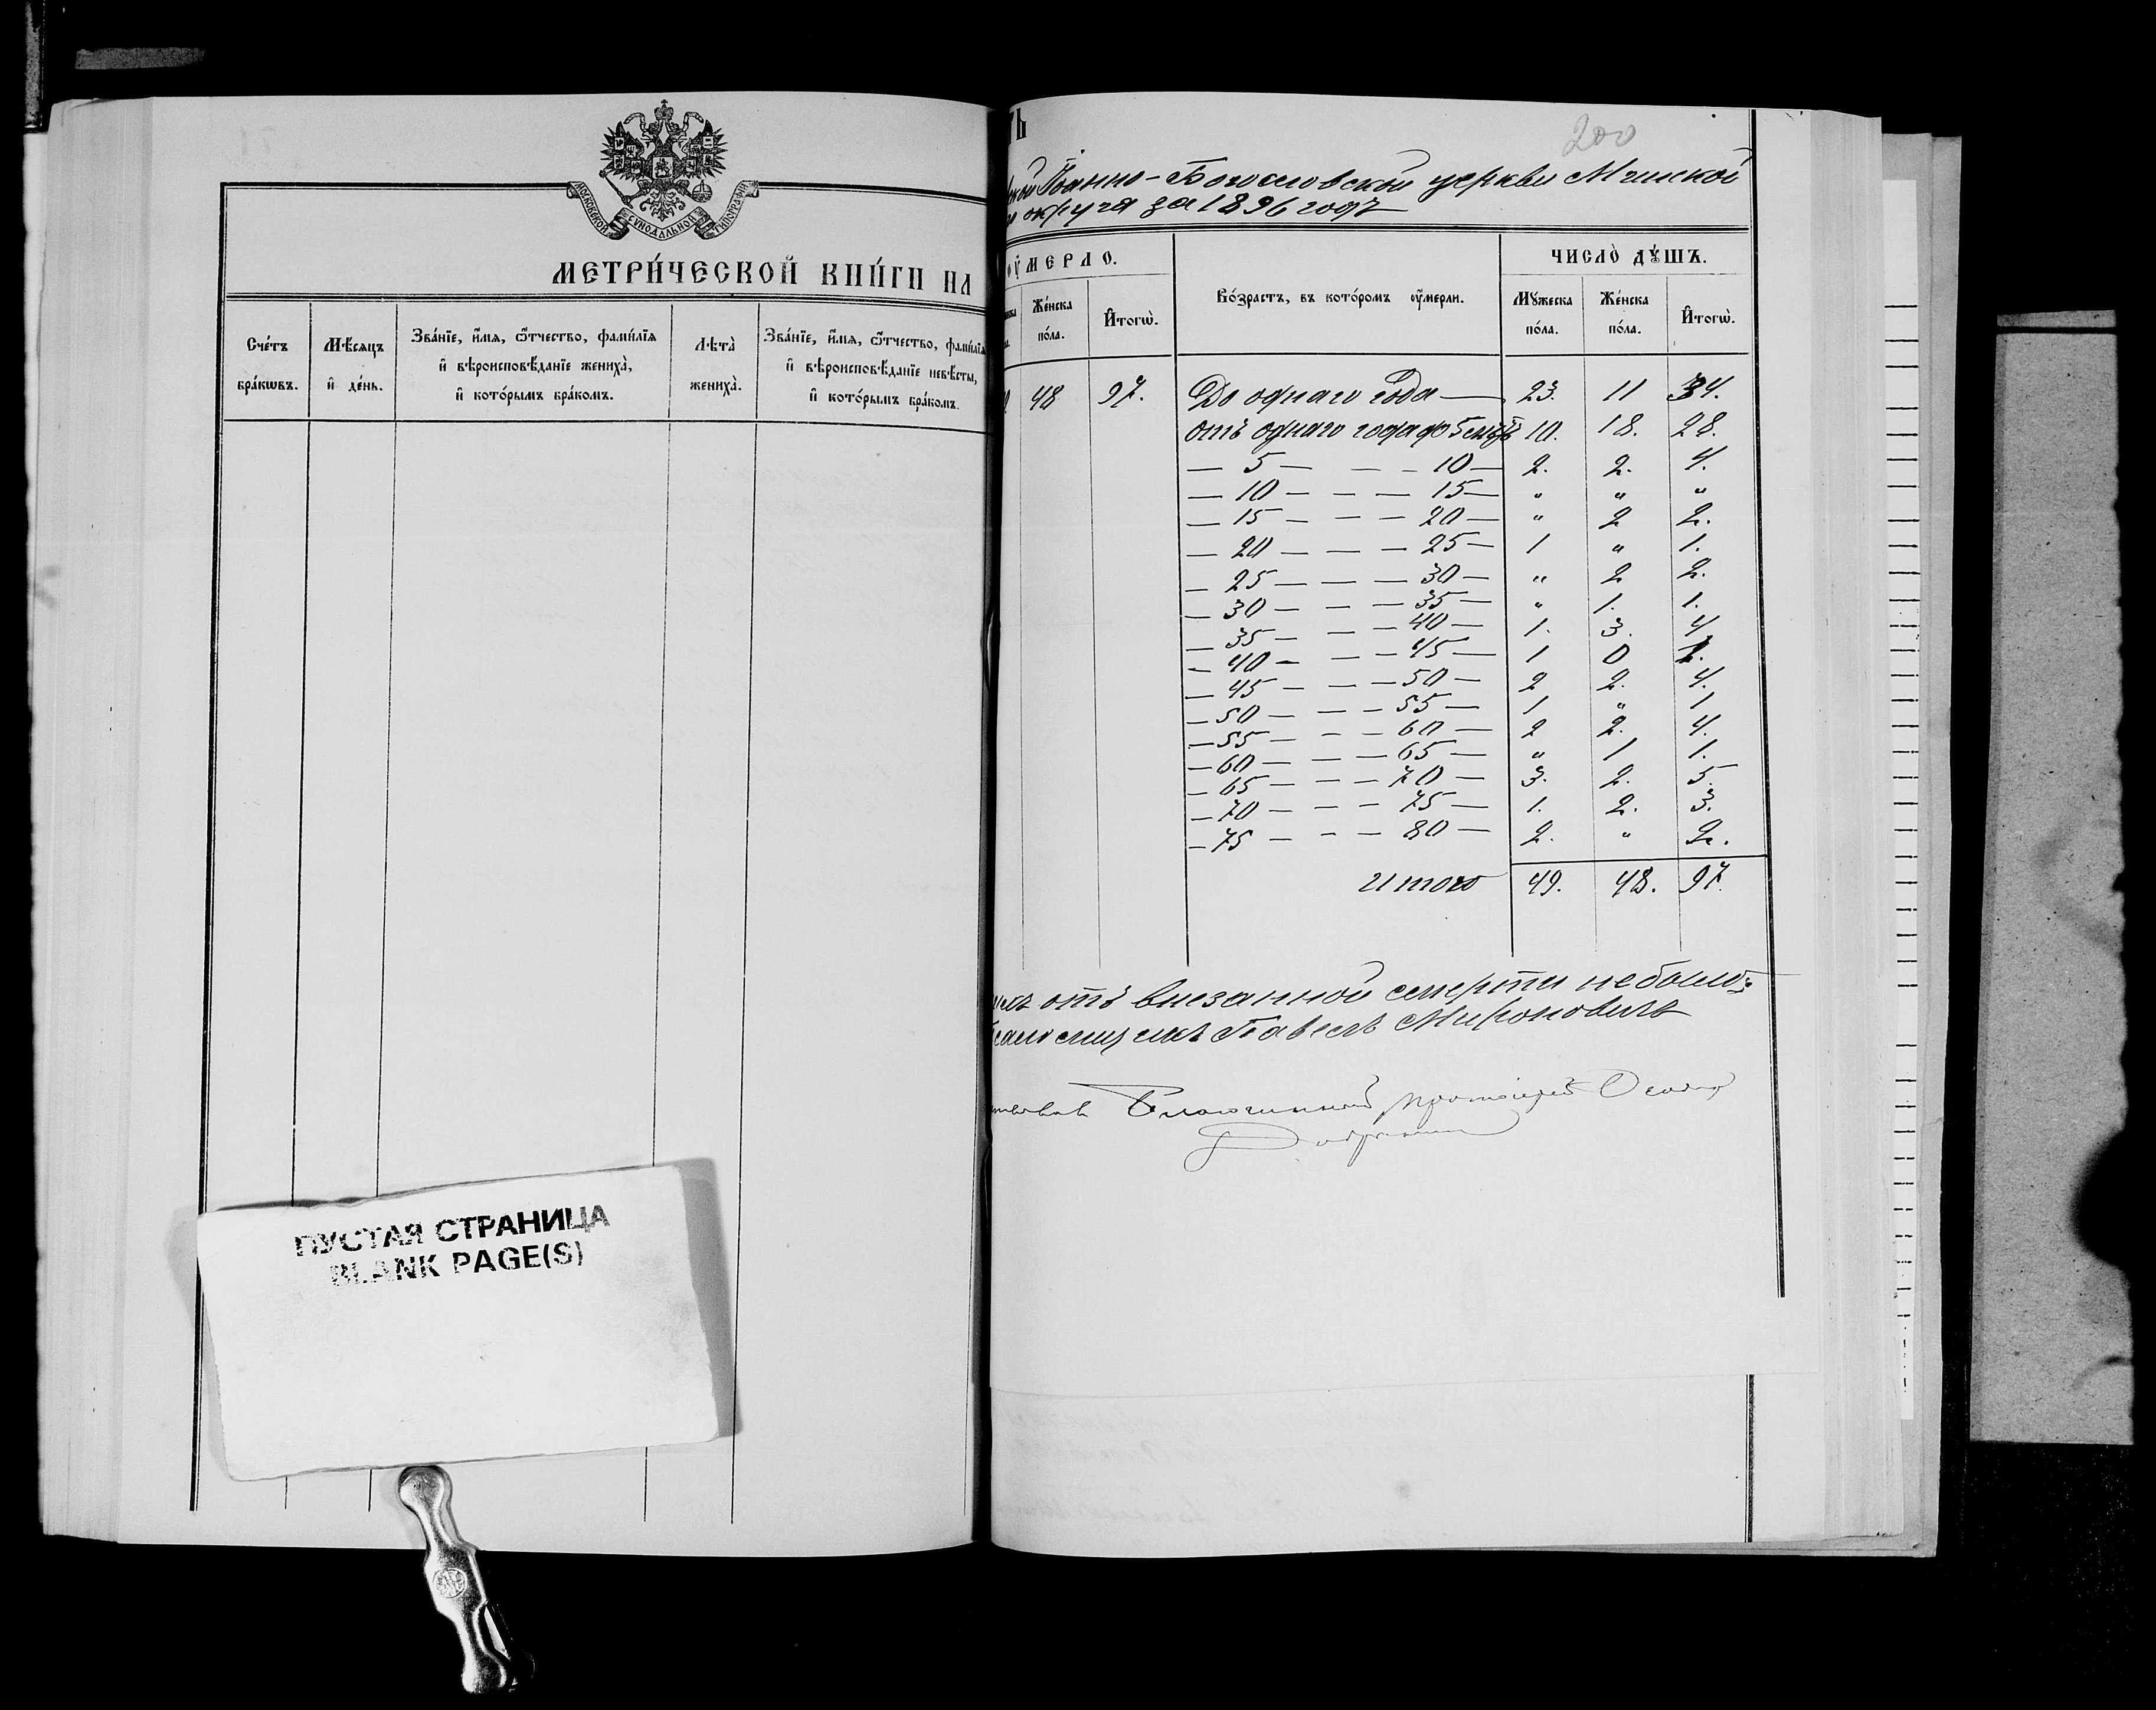 МОСКОВСКОЙ СѴНОДАЛЬНОЙ ТѴПОГРАФІИ
МЕТРИ́ЧЕСКОЙ КНИ́ГИ НА
Сче́тъ бра́кѡвъ.
М҃ѣсяцъ и҆ де́нь.
Зва́нїе, и҆́мѧ, ѻ҆́тчество, фами́лїѧ
и҆ вѣроисповѣ́данїе жениха̀,
и҆ кото́рымъ бра́комъ.
Лѣ́та̀ жениха̀.
Зва́нїе, и҆́мѧ, ѻ҆́тчество, фами́лїѧ
и҆ вѣроисповѣ́данїе невѣ́сты,
и҆ кото́рымъ бра́комъ.
ПУСТАЯ СТРАНИЦА
BLANK PAGE(S)
ть
200
Іоанно-Богословской церкви Мглинской
округа за 1896 годъ
ᲂу҆́МЕРЛО.
ЧИСЛО̀ ДꙊ́ШЪ.
Же́нска по́ла.
И҆тогѡ̀.
Во́зрастъ, въ кото́ромъ ᲂу҆́мерли.
Мꙋ́жеска по́ла.
Же́нска по́ла.
И҆тогѡ̀.
48 97. До одного года — 23. 11 34.
отъ одного года до 5 лѣтъ 10. 18. 28.
— 5 — — — 10 — 2. 2. 4.
— 10 — — — 15 — " " "
— 15 — — — 20 — " 2 2.
— 20 — — — 25 — 1 " 1.
— 25 — — — 30 — " 2 2.
— 30 — — — 35 — " 1. 1.
— 35 — — — 40 — 1. 3. 4
— 40 — — — 45 — 1 0 1.
— 45 — — — 50 — 2 2. 4.
— 50 — — — 55 — 1 " 1
— 55 — — — 60 — 2 2. 4.
— 60 — — — 65 — " 1 1.
— 65 — — — 70 — 3. 2. 5.
— 70 — — — 75 — 1. 2. 3.
— 75 — — — 80 — 2. " 2.
Итого 49. 48. 97.
отъ внезапной смерти не было
Павелъ Мироновичъ
Благочинный протоіерей